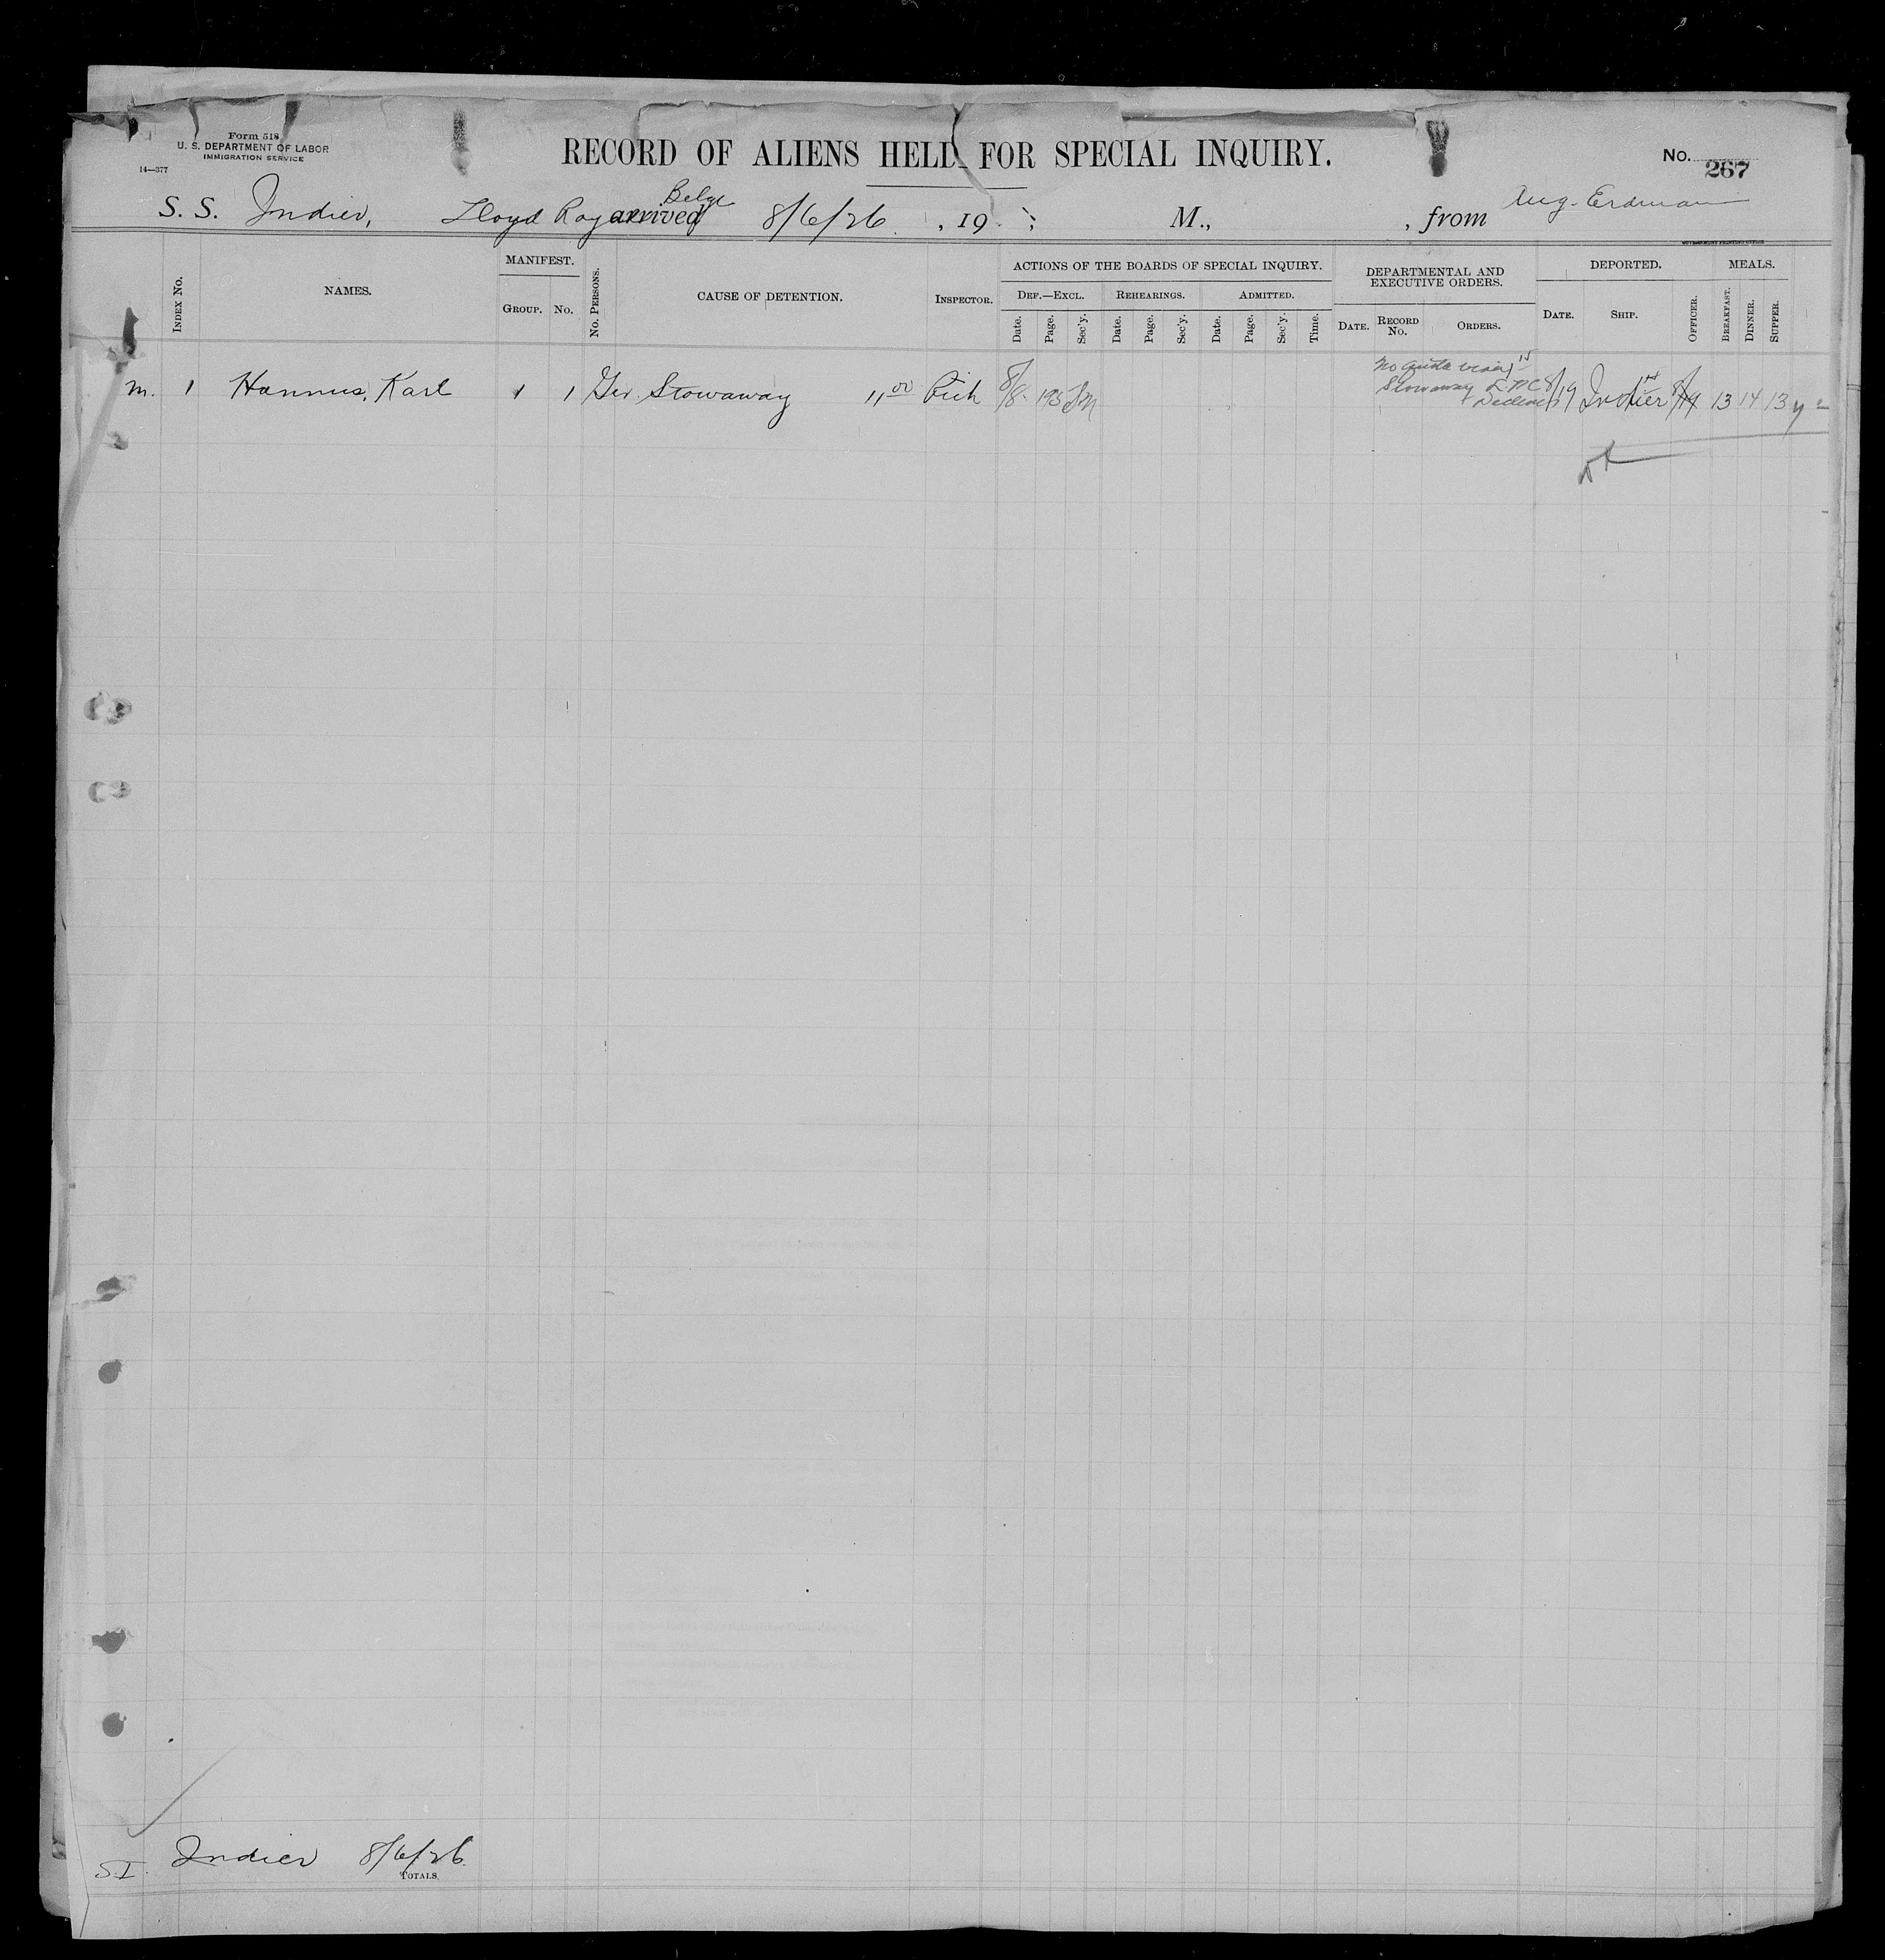 Form 518
U. S. DEPARTMENT OF LABOR
IMMIGRATION SERVICE
14—377
RECORD OF ALIENS HELD FOR SPECIAL INQUIRY.
No. 267
S. S. Indier, Lloyd Royal Belge arrived 8/6/26, 19 ; M., , from Aug. Erdman
GOVERNMENT PRINTING OFFICE
INDEX NO.
NAMES.
MANIFEST.
GROUP. NO.
NO. PERSONS.
CAUSE OF DETENTION.
INSPECTOR.
ACTIONS OF THE BOARDS OF SPECIAL INQUIRY.
DEF.—EXCL. REHEARINGS. ADMITTED.
Date. Page. Sec'y. Date. Page. Sec'y. Date. Page. Sec'y. Time.
DEPARTMENTAL AND
EXECUTIVE ORDERS.
DATE. RECORD NO. ORDERS.
DEPORTED.
DATE. SHIP. OFFICER.
MEALS.
BREAKFAST. DINNER. SUPPER.
No quota visa
Stowaway L.P.C.
m. 1 Hannus, Karl 1 1 Ger. Stowaway 11 00 8/8 195 8/19 Indier 13 14 13
S.I. Indier 8/6/26
TOTALS